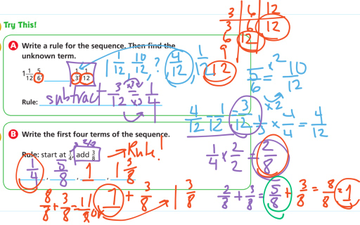 Try This!
A Write a rule for the sequence. Then find the unknown term.
1 1/12, 5/6
1 1/12, 10/12, ?, 4/12, 1/12
Rule: subtract 3/12 ÷3/÷3 1/4
3 6 12
3 6 12
9
12
5/6 ×2 = 10/12
×2
4/12 1/12 3/12
1/3 × 4/4 = 4/12
1/4 × 2/2 = 2/8
B Write the first four terms of the sequence.
Rule: start at 1/4, add 3/8
→ Rule!
1/4, 5/8, 1, 1 3/8
8/8 + 3/8 = 11/8 or 1 + 3/8 1 3/8
2/8 + 3/8 = 5/8 + 3/8 = 8/8 = 1